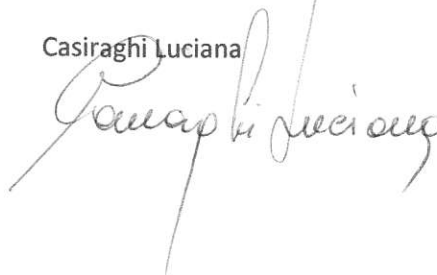 Casiraghi Luciana
Casiraghi Luciana